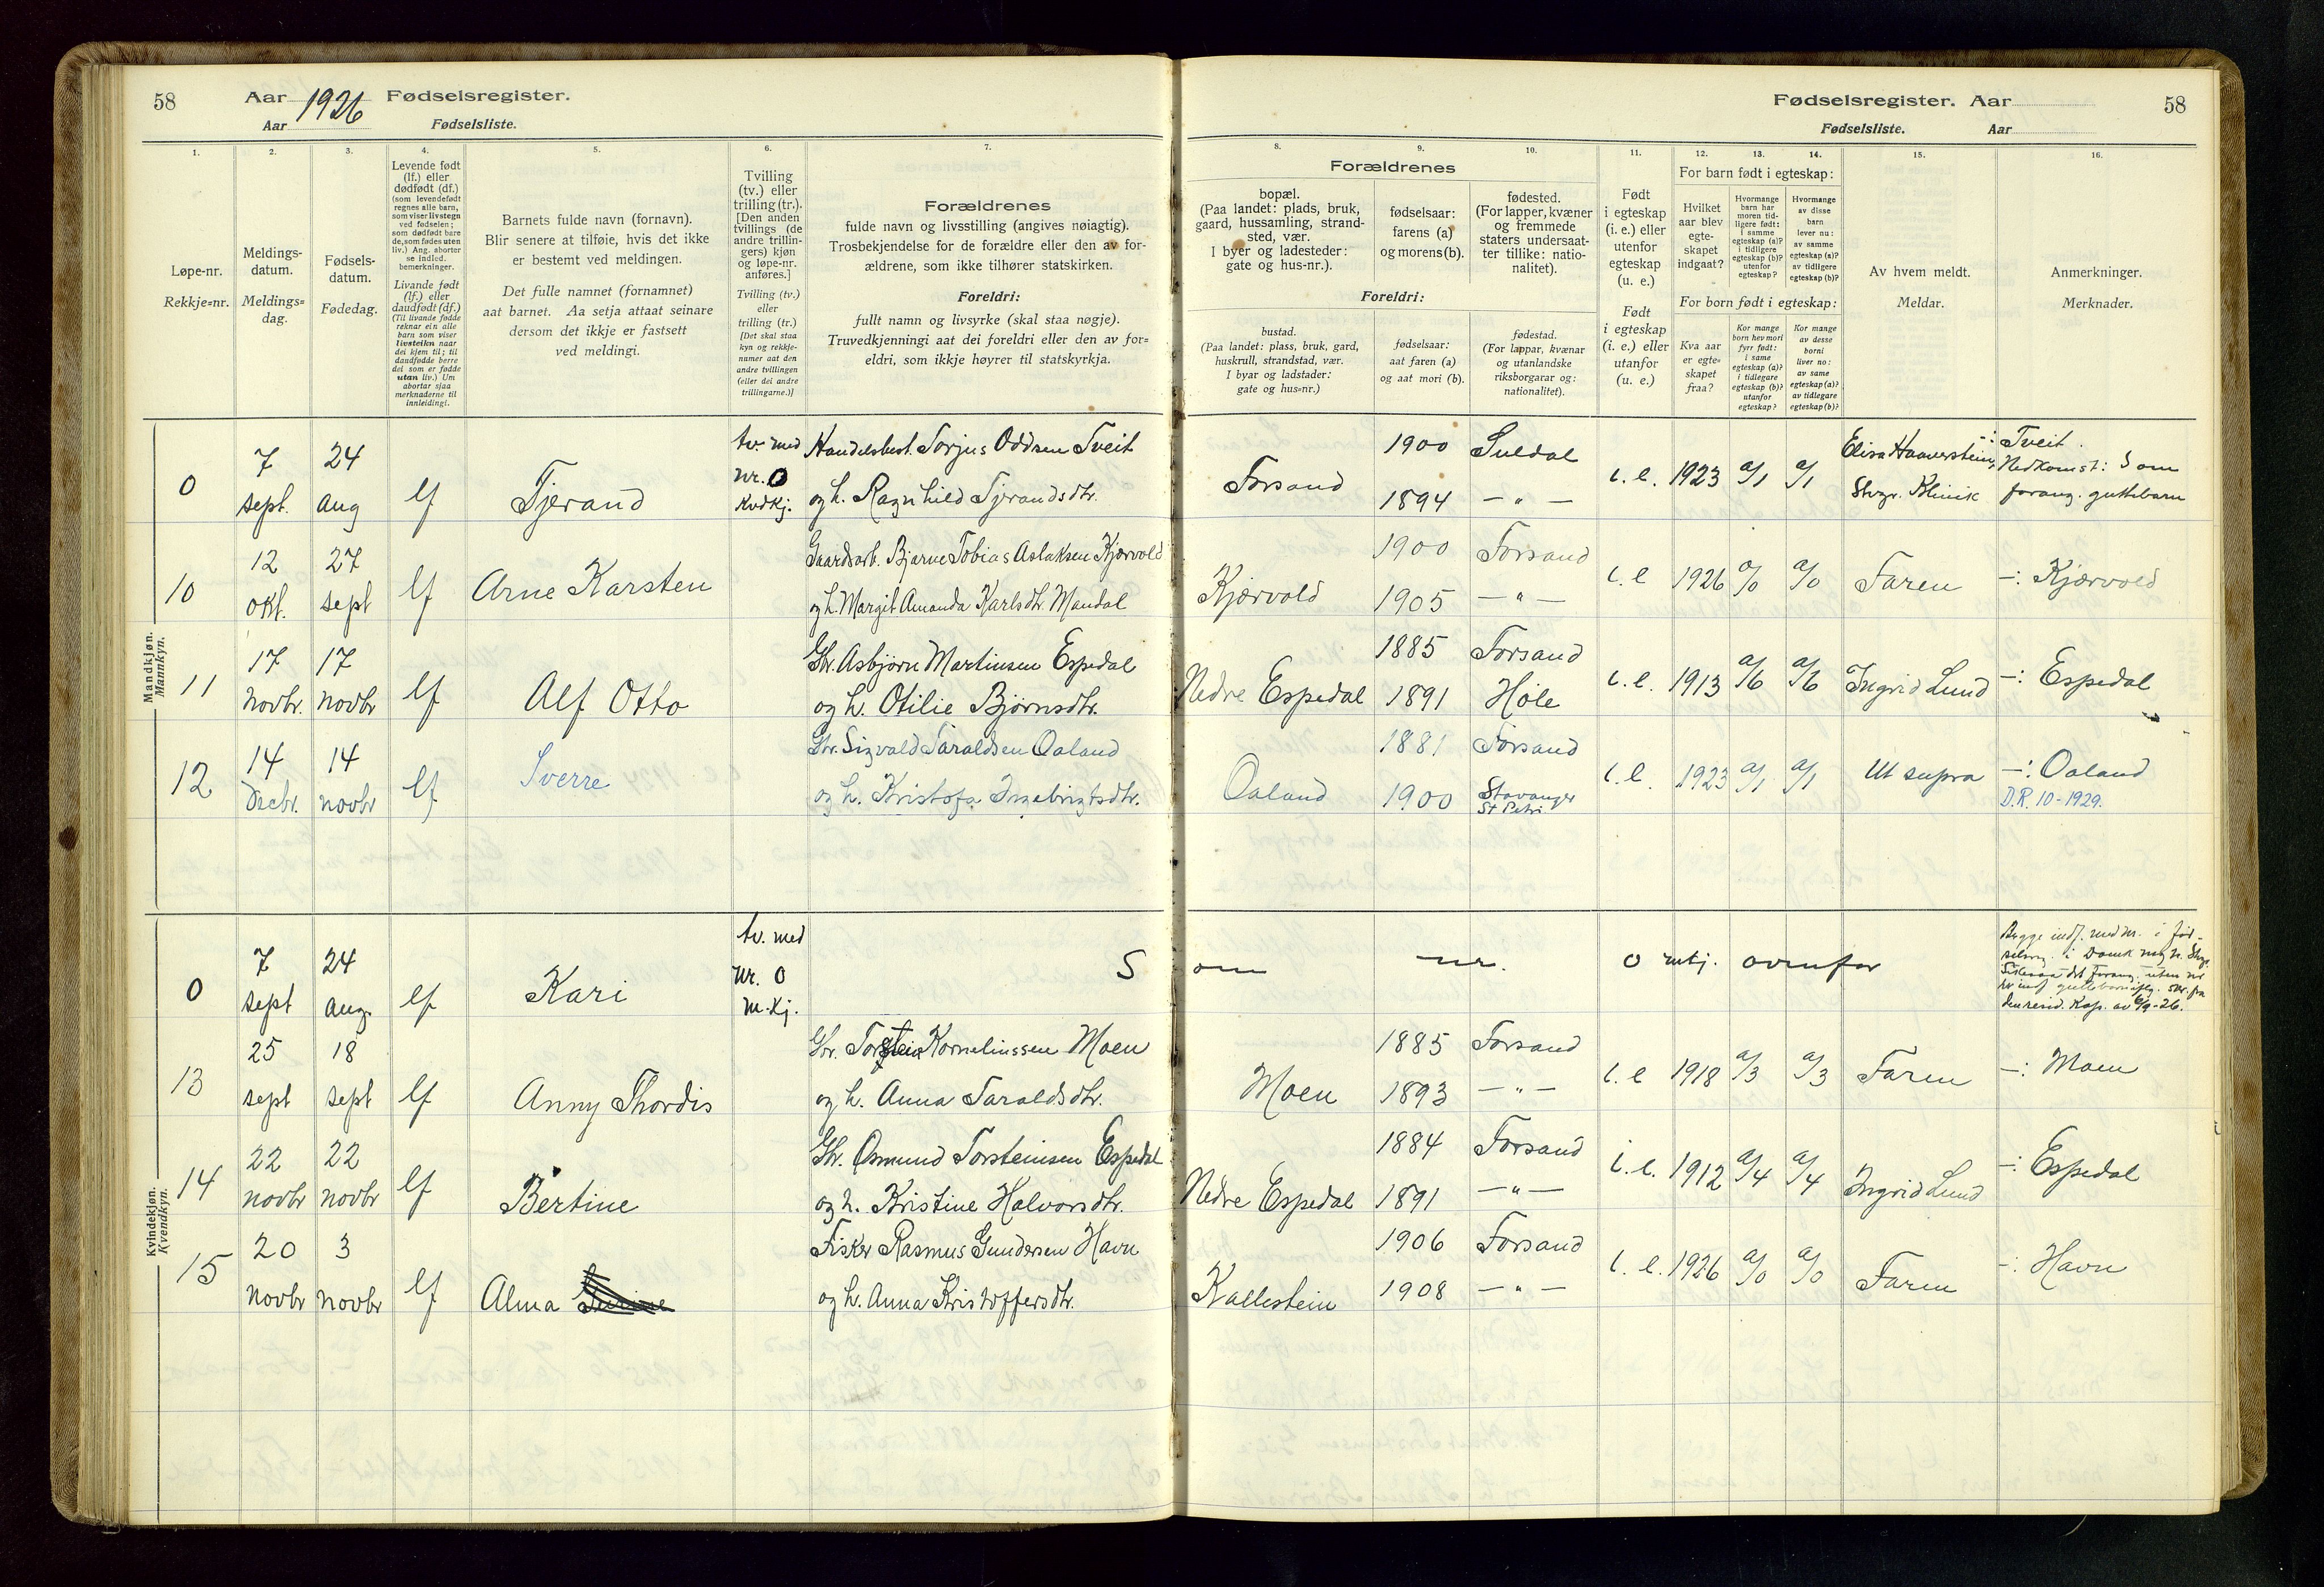 58
Aar 1926 Fødselsregister.
Aar Fødselsliste.
1.
Løpe-nr.
Rekkje=nr.
2.
Meldings-
datum.
Meldings=
dag.
3.
Fødsels-
datum.
Fødedag.
4.
Levende født
(lf.) eller
dødfødt (df.)
(som levendefødt
regnes alle barn,
som viser livstegn
ved fødselen;
som dødfødt bare
de, som fødes uten
liv.) Ang. aborter
se indled.
bemerkninger.
Livande født
(lf.) eller
daudfødt (df.)
(Til livande fødde
reknar ein alle
barn som viser
livsteikn naar
dei kjem til; til
daudfødde berre
dei som er fødde
utan liv.) Um
abortar sjaa
merknaderne til
innleidingi.
5.
Barnets fulde navn (fornavn).
Blir senere at tilføie, hvis det ikke
er bestemt ved meldingen.
Det fulle namnet (fornamnet)
aat barnet. Aa setja attaat seinare
dersom det ikkje er fastsett
ved meldingi.
6.
Tvilling
(tv.) eller
trilling (tr.).
[Den anden
tvillings (de
andre trillin-
gers) kjøn
og løpe-nr.
anføres.]
Tvilling (tv.)
eller
trilling (tr.)
[Det skal staa
kyn og rekkje-
numer aat den
andre tvillingen
(eller dei andre
trillingarne.)]
7.
Forældrenes
fulde navn og livsstilling (angives nøiagtig).
Trosbekjendelse for de forældre eller den av for-
ældrene, som ikke tilhører statskirken.
Foreldri:
fullt namn og livsyrke (skal staa nøgje).
Truvedkjenningi aat dei foreldri eller den av for=
eldri, som ikkje høyrer til statskyrkja.
Fødselsregister. Aar
58
Fødselsliste. Aar
Forældrenes
8.
bopæl.
(Paa landet: plads, bruk,
gaard, hussamling, strand-
sted, vær.
I byer og ladesteder:
gate og hus-nr.).
9.
fødselsaar:
farens (a)
og morens (b).
10.
fødested.
(For lapper, kvæner
og fremmede
staters undersaat-
ter tillike: natio-
nalitet).
Foreldri:
bustad.
(Paa landet: plass, bruk, gard,
huskrull, strandstad, vær.
I byar og ladstader:
gate og hus=nr.)
fødselsaar:
aat faren (a)
og aat mori (b).
fødestad.
(For lappar, kvænar
og utanlandske
riksborgarar og:
nationalitet).
11.
Født
i egteskap
(i. e.) eller
utenfor
egteskap
(u. e.)
Født
i egteskap
(i. e.) eller
utanfor
(u. e.)
For barn født i egteskap:
12.
Hvilket
aar blev
egte-
skapet
indgaat?
13.
Hvormange
barn har
moren tid-
ligere født:
i samme
egteskap (a)?
i tidligere
egteskap (b)?
utenfor
egteskap?
14.
Hvormange
av disse
barn
lever nu:
av samme
egteskap (a)?
av tidligere
egteskap (b)?
For born født i egteskap:
Kva aar
er egte=
skapet
fraa?
Kor mange
born hev mori
fyrr født:
i same
egteskap (a)?
i tidlegare
egteskap (b)?
utanfor
egteskap?
Kor mange
av desse
borni
liver no:
av same
egteskap (a)?
av tidlegare
egteskap (b)?
15.
Av hvem meldt.
Meldar.
16.
Anmerkninger.
Merknader.
Mandkjøn.
Mannkyn.
0 7 sept. 24 aug lf Tjerand tv. med nr. 0 kvd kj.
Handelsbest. Torjus Oddsen Tveit
og h. Ragnhild Tjerandsdtr.
Forsand 1900 Suldal
1894 — " —
i. e. 1923 a/1 a/1 Elisa Haaverstein, Stvgr. Klinik
—: Tveit.
Nedkomst: Som
forang. guttebarn
10 12 okt. 27 sept lf Arne Karsten
Gaardsarb. Bjarne Tobias Aslaksen Kjørvold
og h. Margit Amanda Karlsdtr. Mandal
Kjørvold 1900 Forsand
1905 — " —
i. e 1926 a/0 a/0 Faren —: Kjørvold
11 17 novbr. 17 novbr lf Alf Otto
Gbr. Asbjørn Martinsen Espedal
og h. Otilie Bjørnsdtr.
Nedre Espedal 1885 Forsand
1891 Høle
i. e. 1913 a/6 a/6 Ingrid Lund —: Espedal
12 14 Decbr. 14 novbr lf Sverre
Gbr. Sigvald Taraldsen Oaland
og h. Kristofa Ingebrigtsdtr.
Oaland 1881 Forsand
1900 Stavanger
St Petri
i. e. 1923 a/1 a/1 Ut supra —: Oaland
D.R. 10-1929.
Kvindekjøn.
Kvendkyn.
0 7 sept 24 aug. lf Kari tv. med nr. 0 m. kj.
Som nr. 0 mkj. ovenfor
den resid. Kap. av 6/9-26.
13 25 sept 18 sept lf Anny Thordis
Gbr. Torstein Korneliussen Moen
og h. Anna Taraldsdtr.
Moen 1885 Forsand
1893 — " —
i. e 1918 a/3 a/3 Faren —: Moen
14 22 novbr 22 novbr lf Bertine
Gbr. Osmund Torsteinsen Espedal
og h. Kristine Halvorsdtr.
Nedre Espedal 1884 Forsand
1891 — " —
i. e. 1912 a/4 a/4 Ingrid Lund —: Espedal
15 20 novbr 3 novbr lf Alma
Fisker Rasmus Gundersen Havn
og h. Anna Kristoffersdtr.
Kallestein 1906 Forsand
1908 — " —
i. e. 1926 a/0 a/0 Faren —: Havn